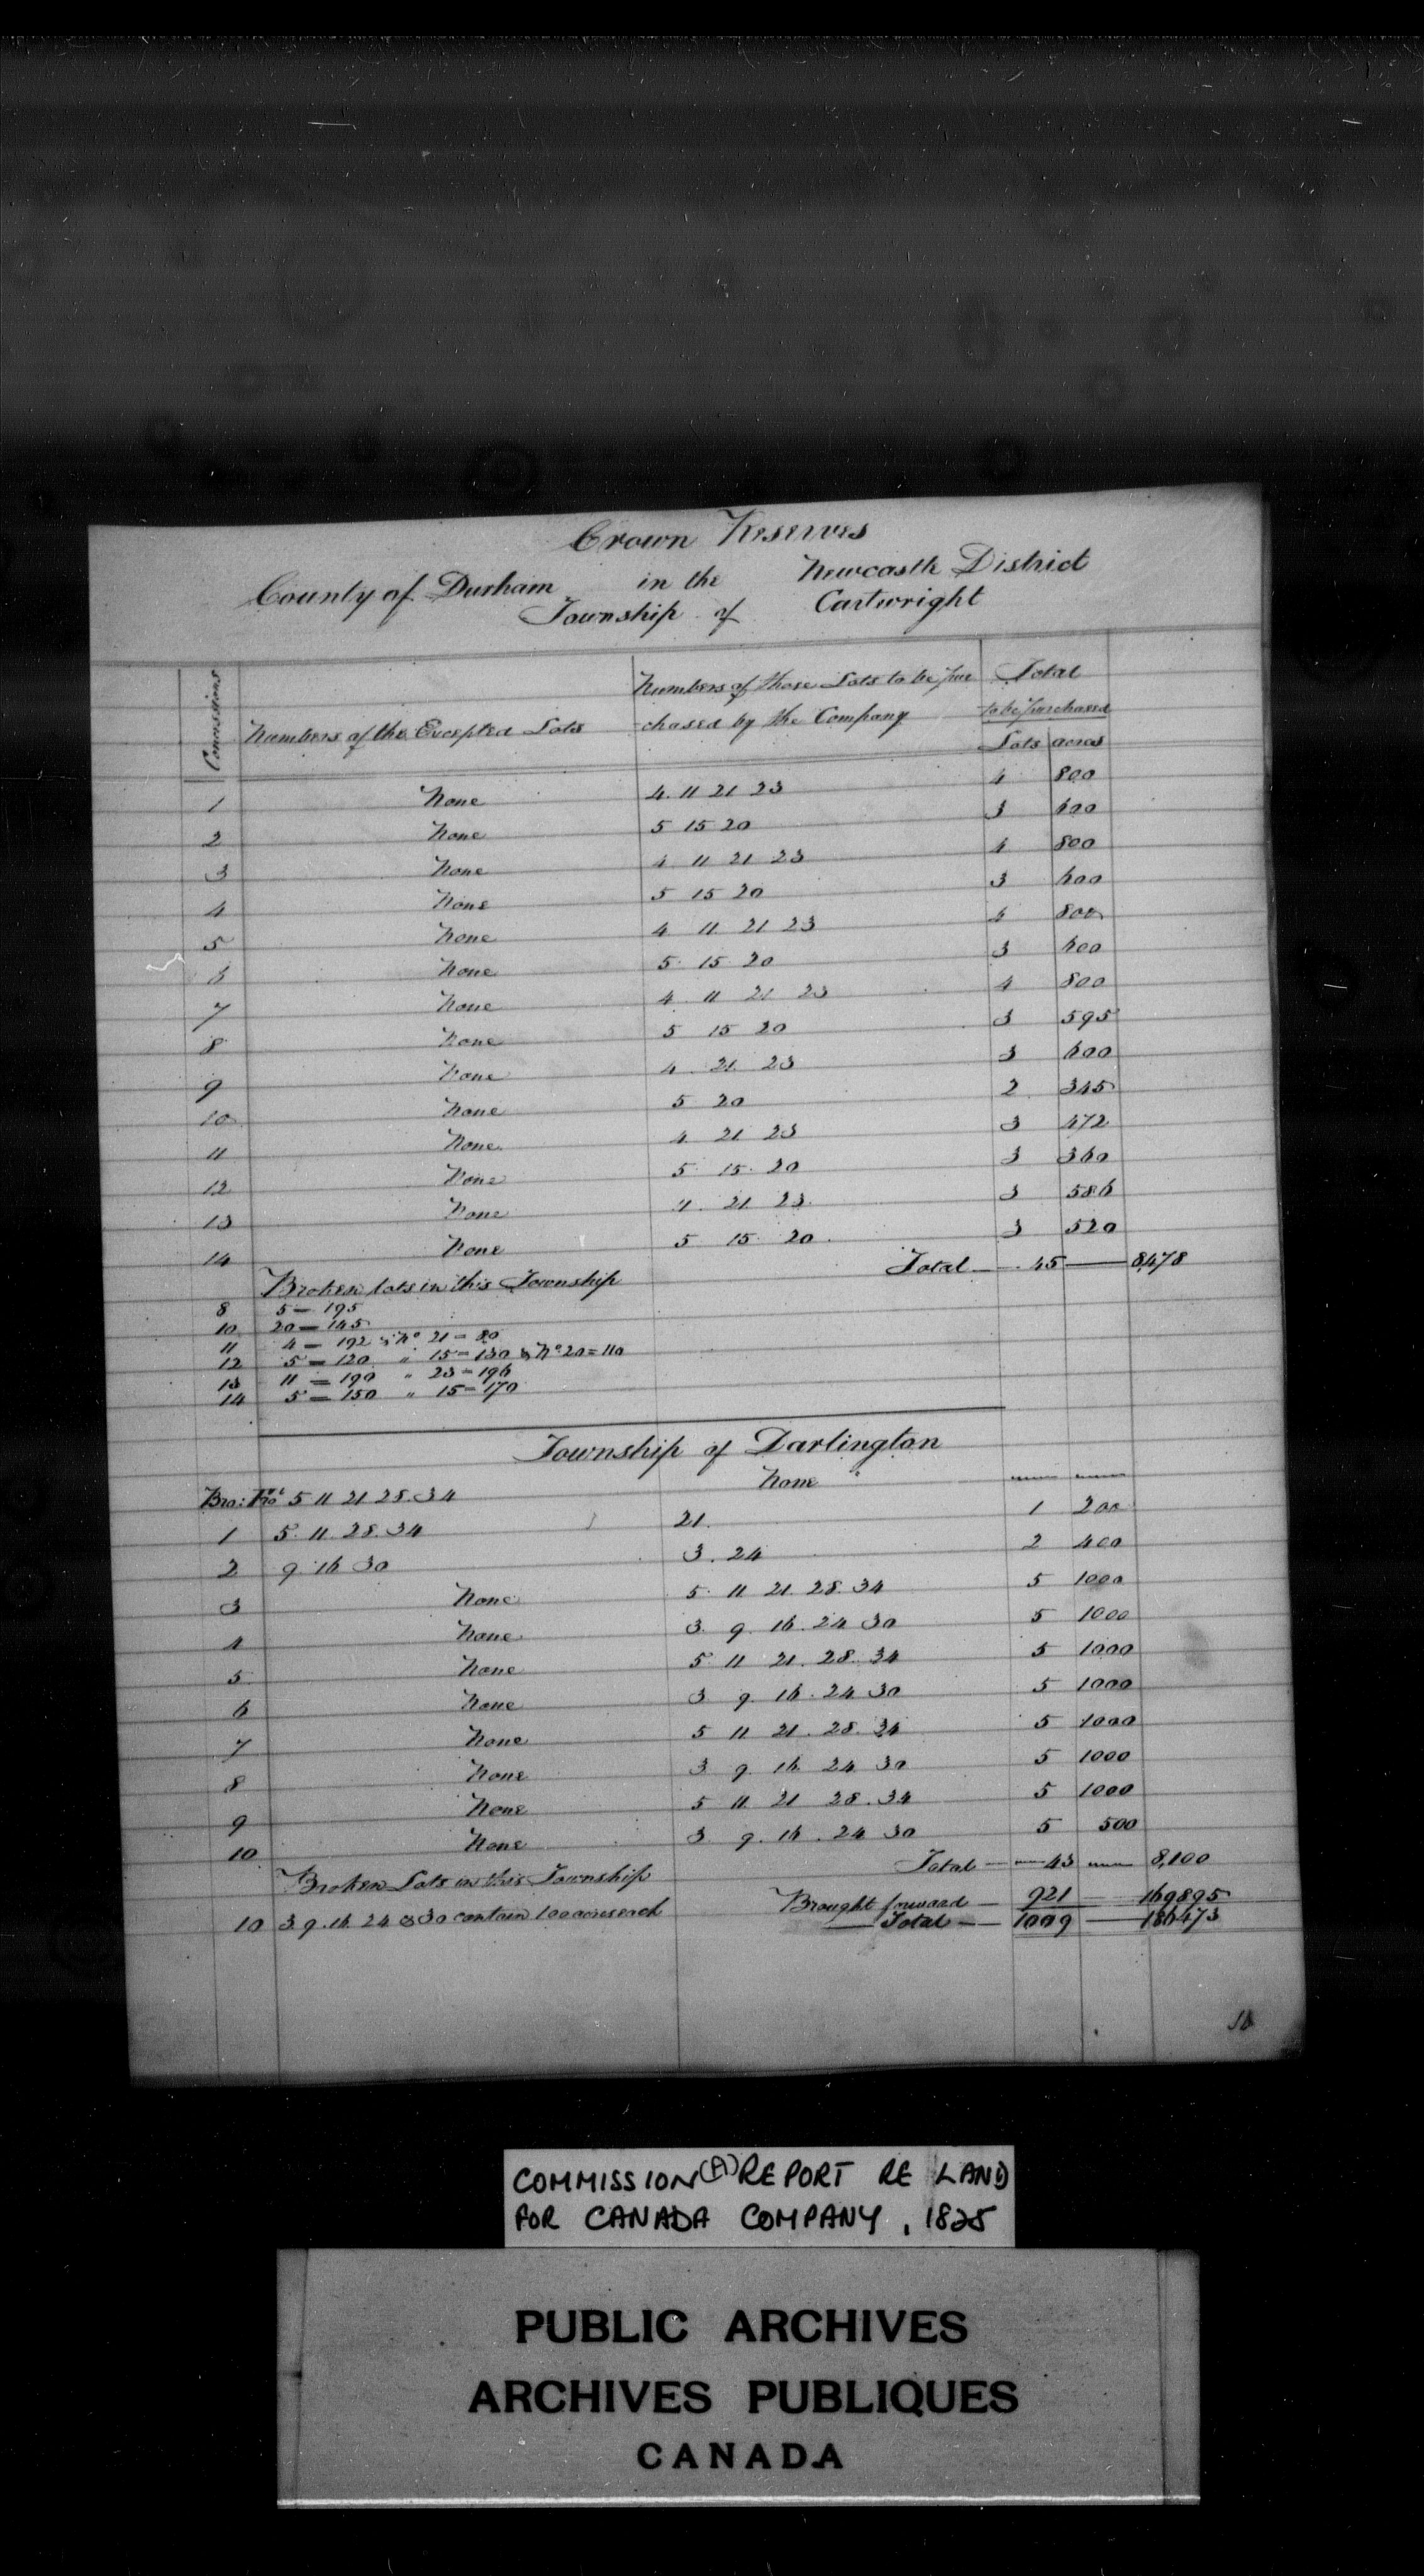 Crown Reserves
County of Durham in the Newcastle District
Township of Cartwright
Concessions | Numbers of the Excepted Lots | Numbers of those Lots to be pur | Total
-chased by the Company | to be purchased
Lots | acres
1 None 4. 11 21 23 4 800
2 None 5 15 20 3 600
3 None 4 11 21 23 4 800
4 None 5 15 20 3 600
5 None 4 11 21 23 4 800
6 None 5 15 20 3 600
7 None 4 11 21 23 4 800
8 None 5 15 20 3 595
9 None 4 21 23 3 600
10 None 5 20 2 345
11 None 4 21 23 3 472
12 None 5 15 20 3 360
13 None 11 21 23 3 586
14 None 5 15 20 3 520
Broken lots in this Township Total — 45 — 8,478
8 5 — 195
10 20 — 145
11 4 — 192 & No 21 = 80
12 5 = 120 " 15 = 130 & No 20 = 110
13 11 = 190 " 23 = 196
14 5 = 150 " 15 = 170
Township of Darlington
Bro: Frot 5 11 21 28. 34 None
1 5. 11. 28. 34 21. 1 200
2 9 16 30 3. 24 2 400
3 None 5. 11 21. 28. 34 5 1000
4 None 3. 9. 16. 24 30 5 1000
5 None 5 11 21. 28. 34 5 1000
6 None 3 9 16. 24 30 5 1000
7 None 5 11 21. 28. 34 5 1000
8 None 3 9. 16. 24 30 5 1000
9 None 5 11 21 28. 34 5 1000
10 None 3 9. 16. 24 30 5 500
Broken Lots in this Township Total — 43 — 8,100
Brought forward — 921 — 169895
10 3. 9. 16. 24 & 30 contain 100 acres each Total — 1009 — 186473
COMMISSION (A) REPORT RE LAND
FOR CANADA COMPANY, 1825
PUBLIC ARCHIVES
ARCHIVES PUBLIQUES
CANADA